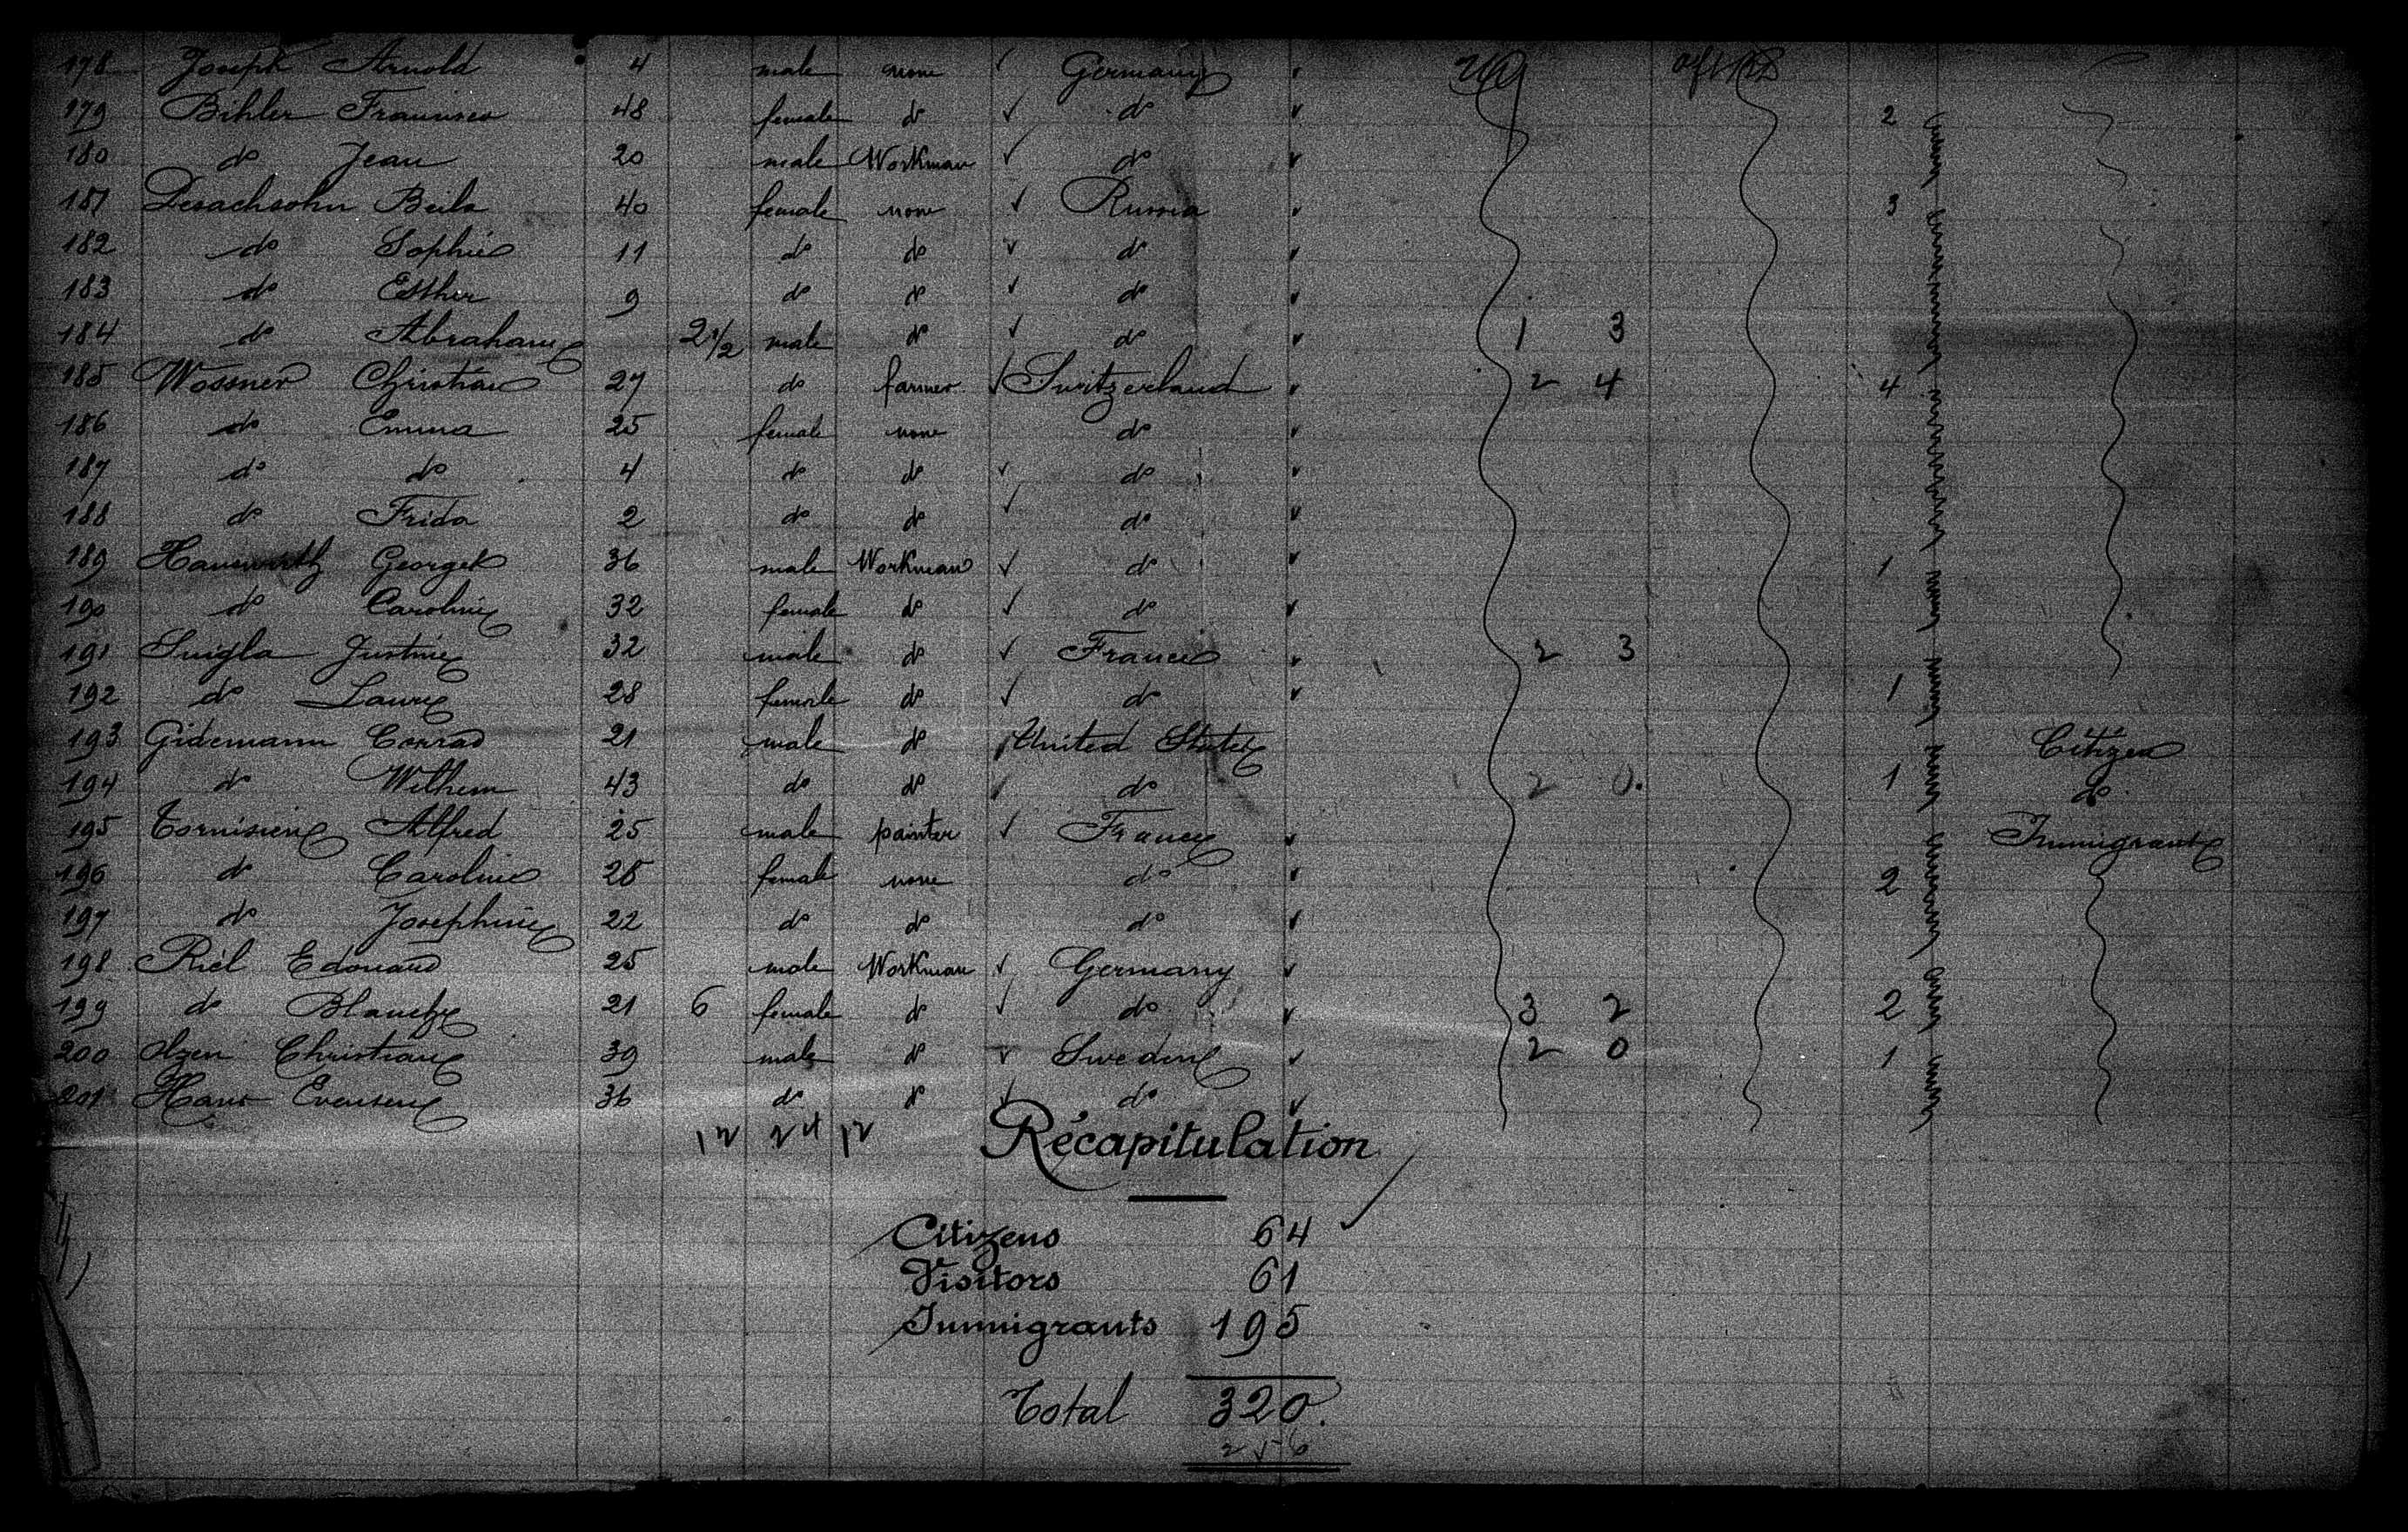 178 Joseph Arnold 4 male none Germany
179 Bihler 48 female do do 2
180 do Jean 20 male Workman do
181 Beila 40 female none Russia 3
182 do Sophie 11 do do do
183 do Esther 9 do do do
184 do Abraham 2 1/2 male do do 1 3
185 Wossner Christian 27 do farmer Switzerland 2 4 4
186 do Emma 25 female none do
187 do do 4 do do do
188 do Frida 2 do do do
189 36 male Workman do 1
190 do Caroline 32 female do do
191 Justine 32 male do France 2 3
192 do Laure 28 female do do 1
193 Gidemann Conrad 21 male do United States Citizen
194 do Wilhem 43 do do do 2 0. 1 do
195 Alfred 25 male painter France Immigrant
196 do Caroline female none do 2
197 do Josephine 22 do do do
198 Riél Edouard 25 male Workman Germany
199 do Blanche 21 6 female do do 3 2 2
200 Olzen Christian 39 male do Sweden 2 0 1
201 Hans Evensen 36 do do do
12 24 12
Récapitulation
Citizens 64
Visitors 61
Immigrants 195
Total 320.
256